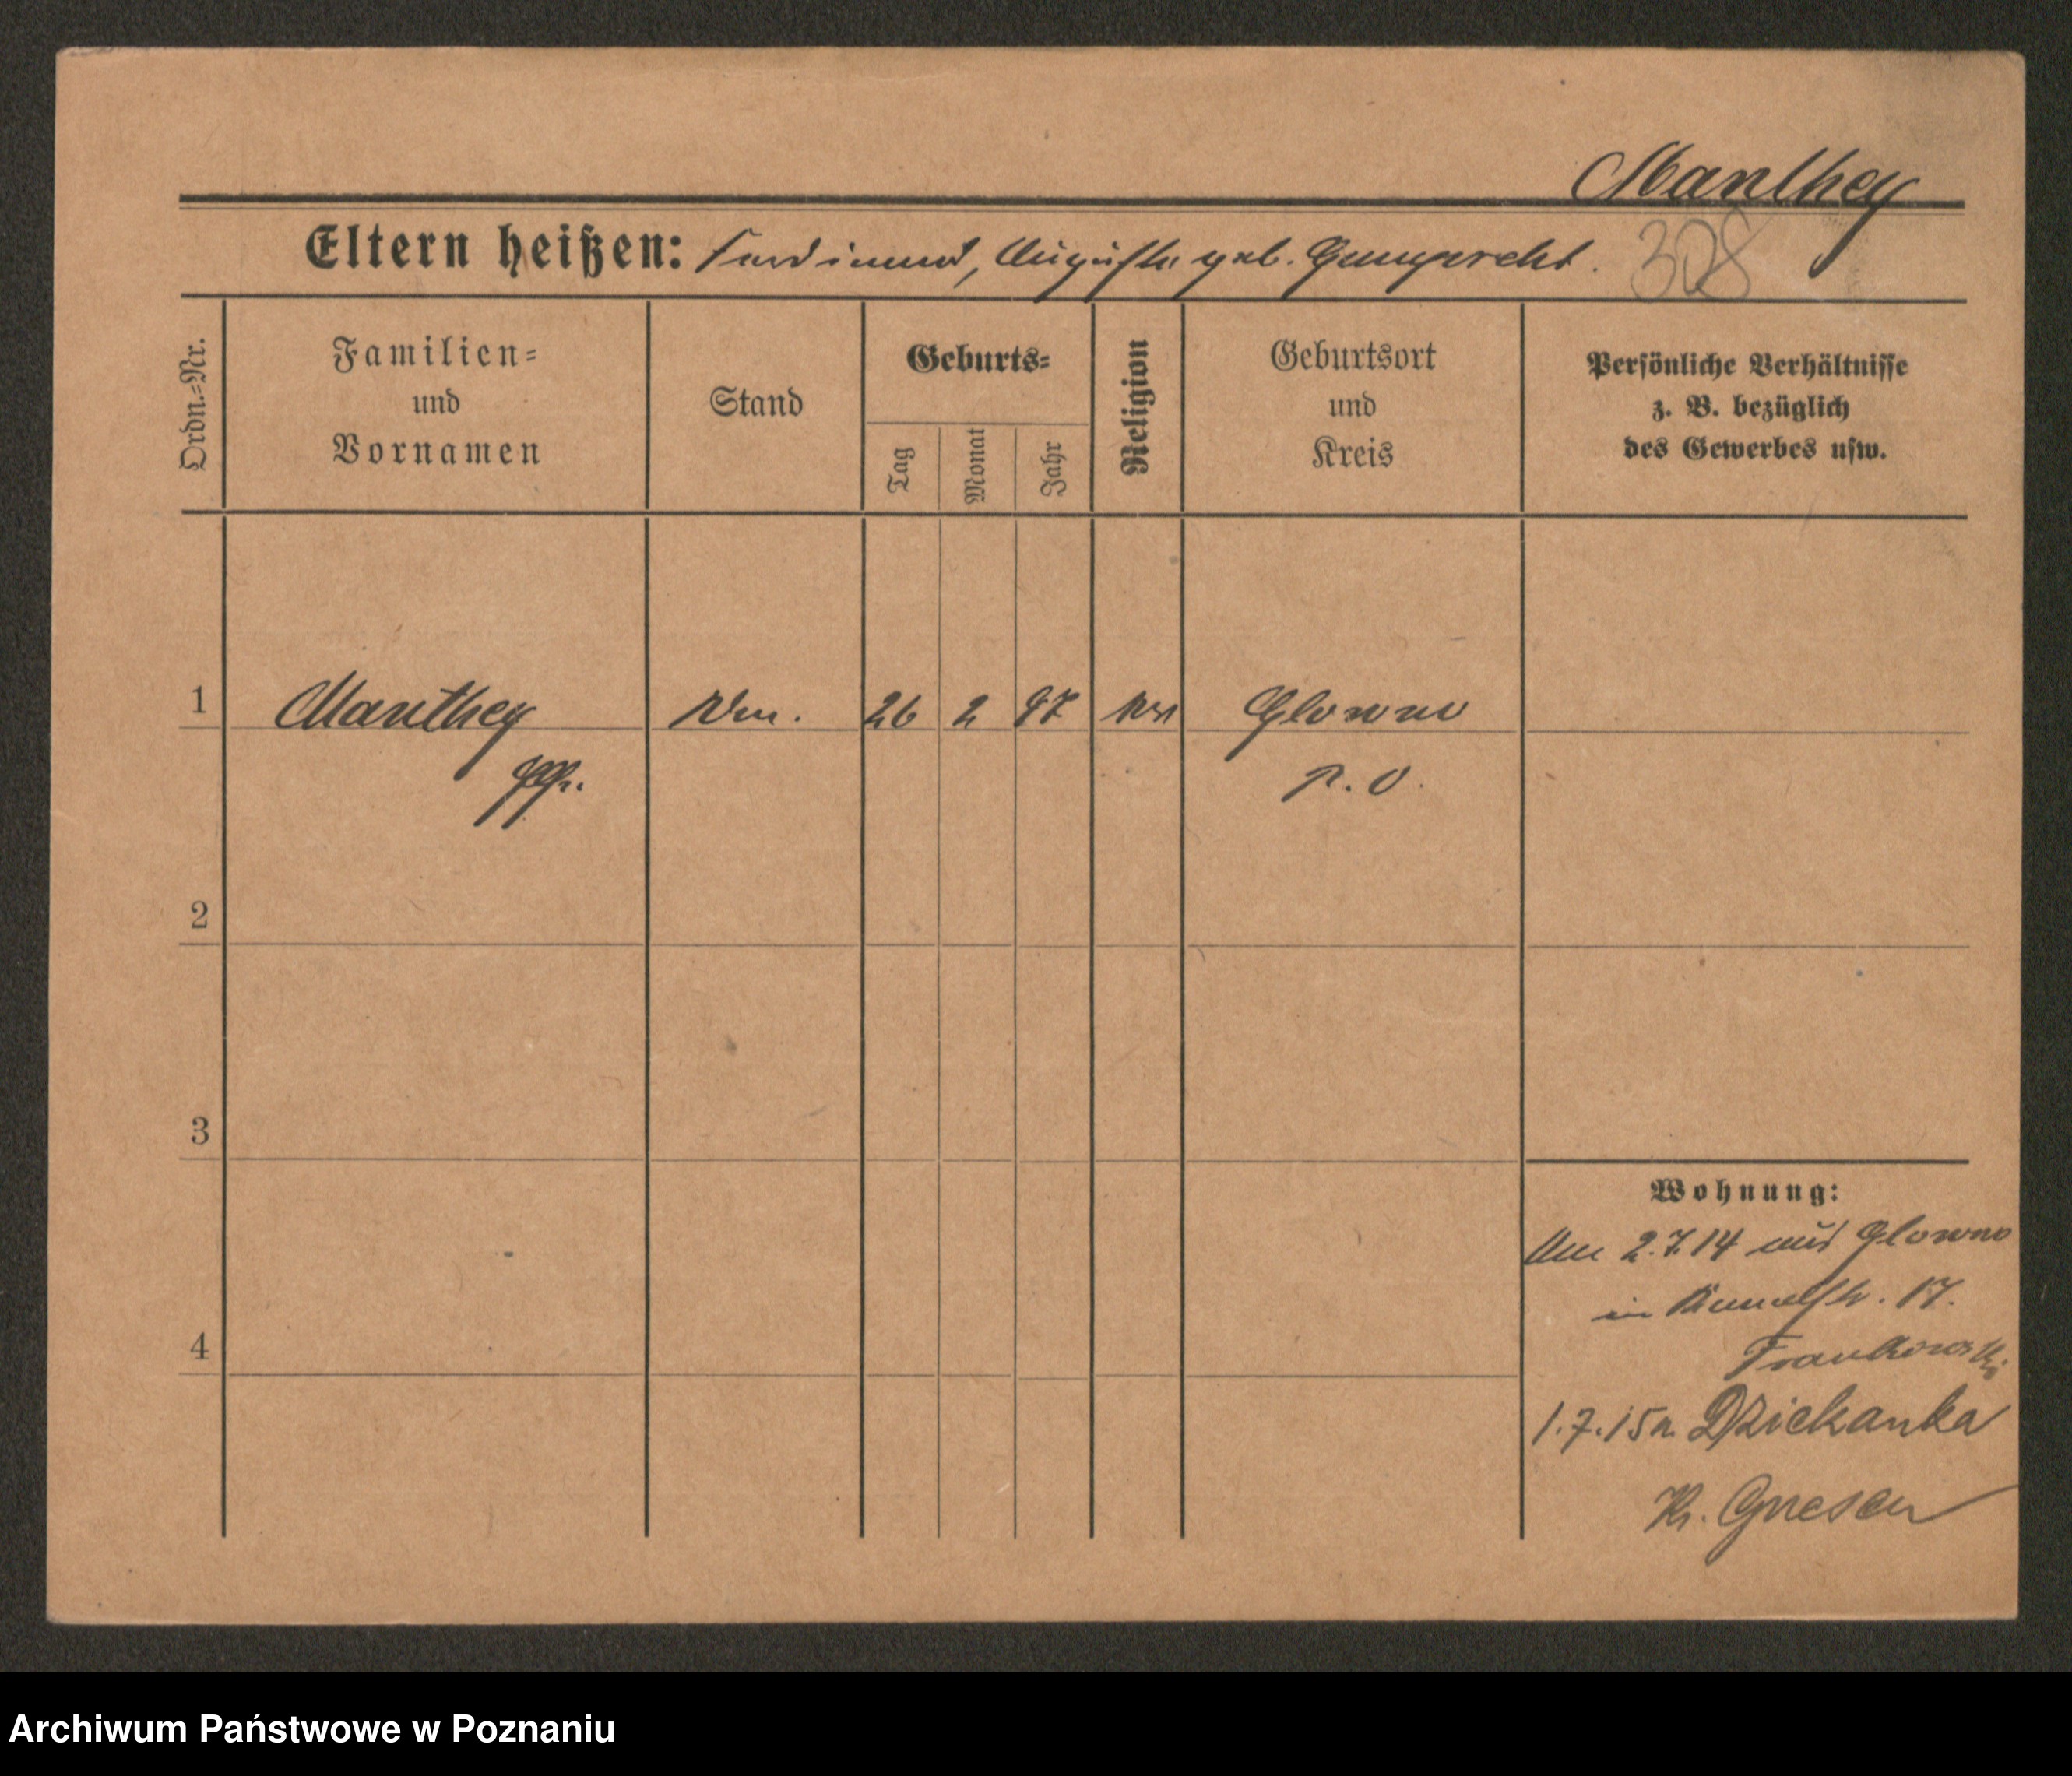 Manthey
Eltern heißen: Ferdinand, Auguste geb. Gumprecht.
308
Ordn.=Nr.
Familien=
und
Vornamen
Stand
Geburts=
Tag
Monat
Jahr
Religion
Geburtsort
und
Kreis
Persönliche Verhältnisse
z. B. bezüglich
des Gewerbes usw.
1 Manthey 26 2 97 Glowno
P. O.
2
3
Wohnung:
Am 2.7.14 aus Glowno
in Kanalstr. 17.
Frankowski
4
1.7.15 n. Dziekanka
Kr. Gnesen
Archiwum Państwowe w Poznaniu